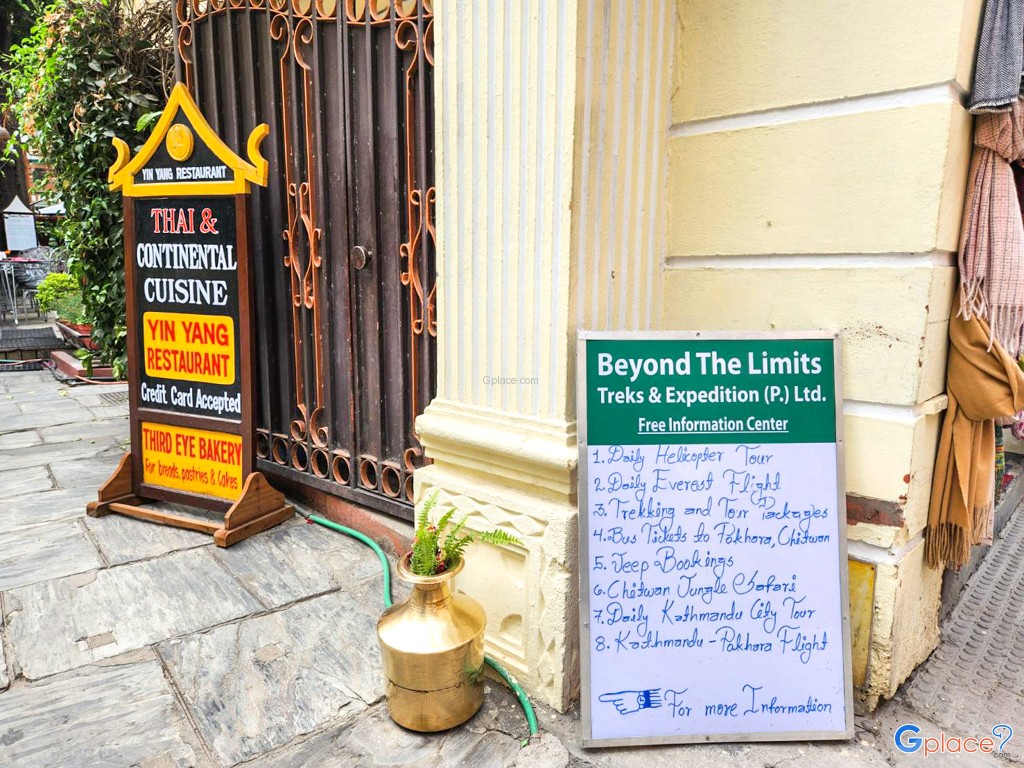 YIN YANG RESTAURANT
THAI &
CONTINENTAL
CUISINE
YIN YANG
RESTAURANT
Credit Card Accepted
THIRD EYE BAKERY
For breads, pastries & Cakes
Gplace.com
Beyond The Limits
Treks & Expedition (P.) Ltd.
Free Information Center
1. Daily Helicopter Tour
2. Daily Everest Flight
3. Trekking and Tour Packages
4. Bus Tickets to Pokhara, Chitwan
5. Jeep Bookings
6. Chitwan Jungle Safari
7. Daily Kathmandu City Tour
8. Kathmandu - Pokhara Flight
For more Information
Gplace
.com